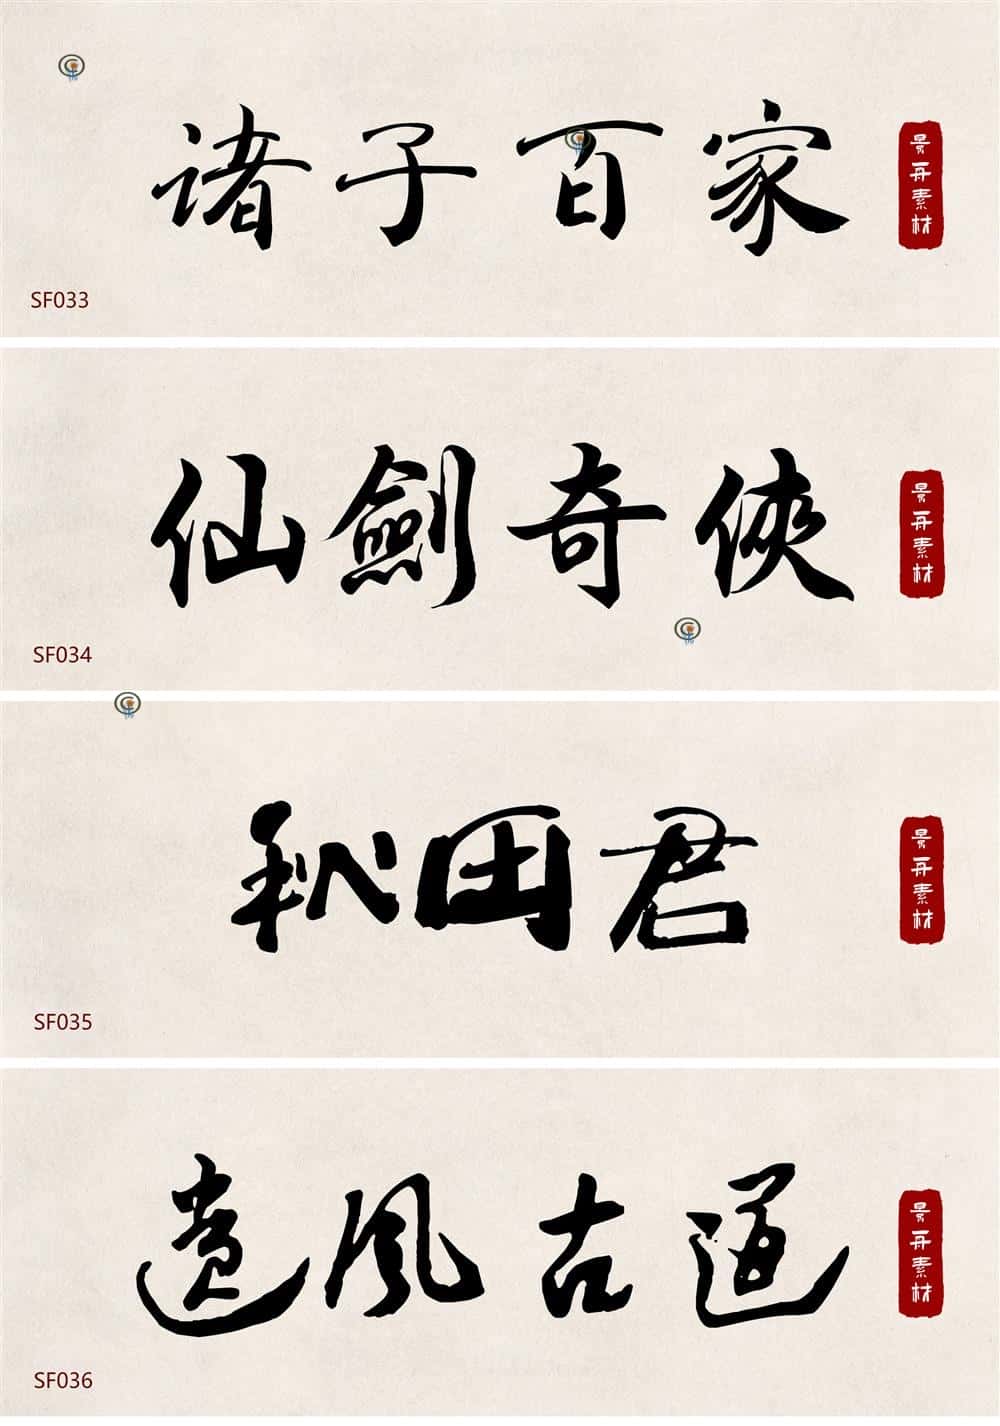 诸子百家
景舟素材
SF033
仙劍奇俠
景舟素材
SF034
秋田君
景舟素材
SF035
遗風古道
景舟素材
SF036